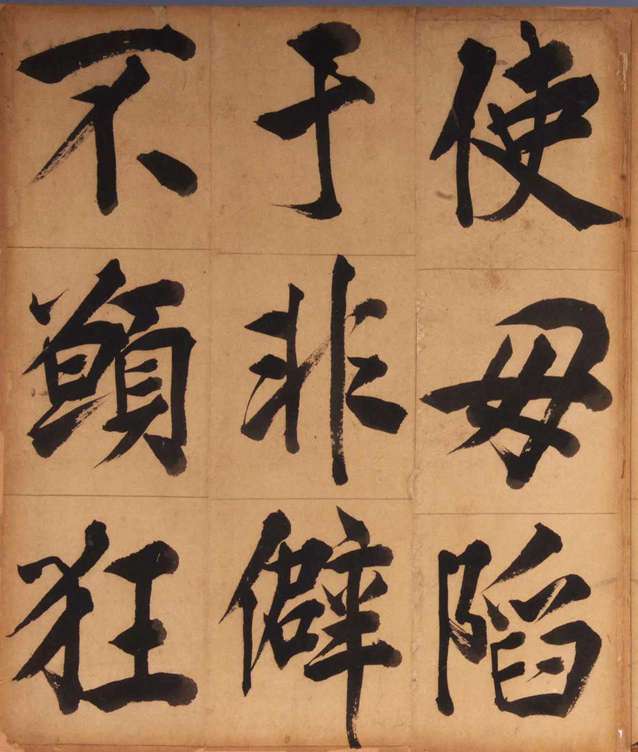 使毋陷
于非僻
不顛狂